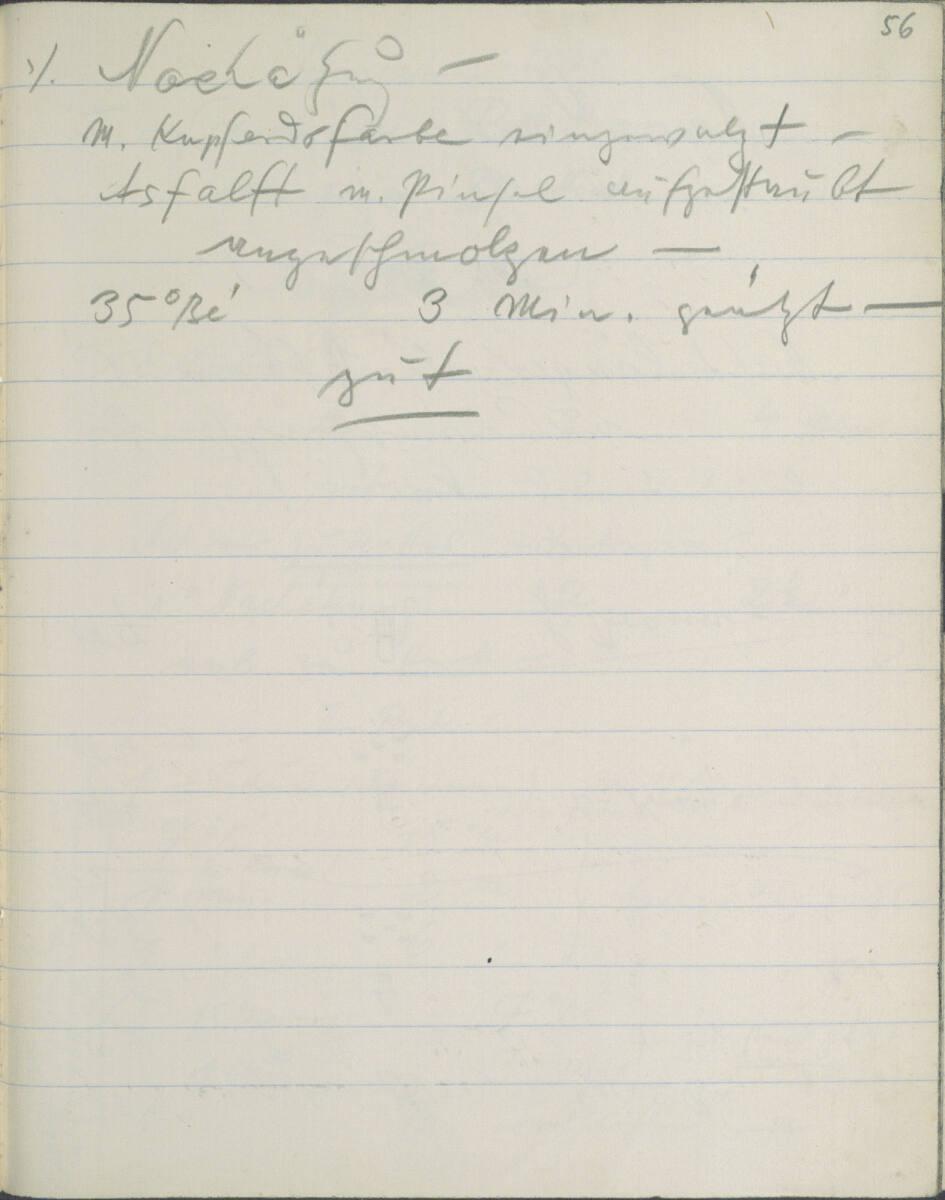 56
%. Nachätzung —
m. Kupferdrfarbe eingewalzt —
Asfallt m. Pinsel aufgestaubt
angeschmolzen —
35° Bé 3 Min. geätzt —
gut